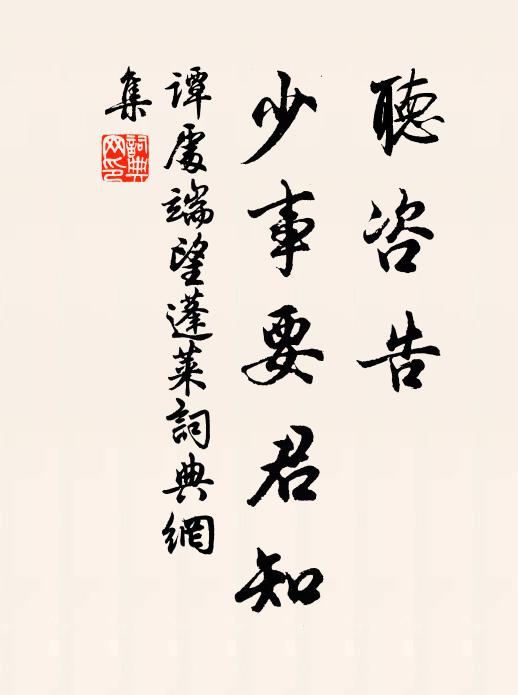 聽咨告
少事要君知
譚處端望蓬萊詞典網
集
詞典
网印